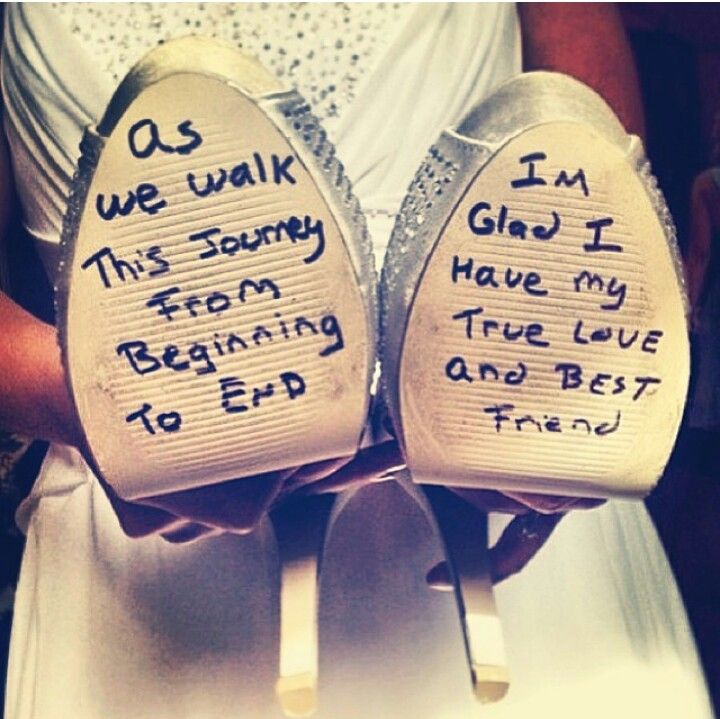 as
we walk
This Journey
From
Beginning
To END
IM
Glad I
Have my
True LOVE
and BEST
Friend